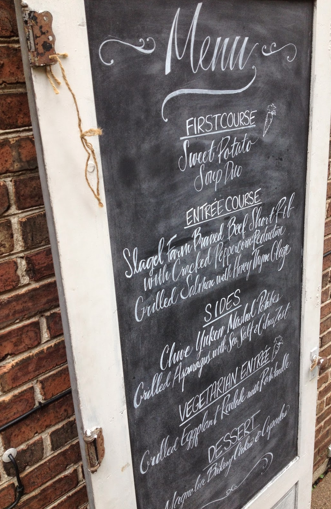 Menu
FIRST COURSE
Sweet Potato
Soup Duo
ENTRÉE COURSE
Slagel Farm Braised Beef Short Rib
with Cracked Peppercorn Reduction
Grilled Salmon with Honey Thyme Glaze
SIDES
Chive Yukon Mashed Potatoes
Grilled Asparagus with Sea Salt &
VEGETARIAN ENTRÉE
Grilled Eggplant & Kendale with
DESSERT
Magnolia Bakery Cakes & Cupcakes